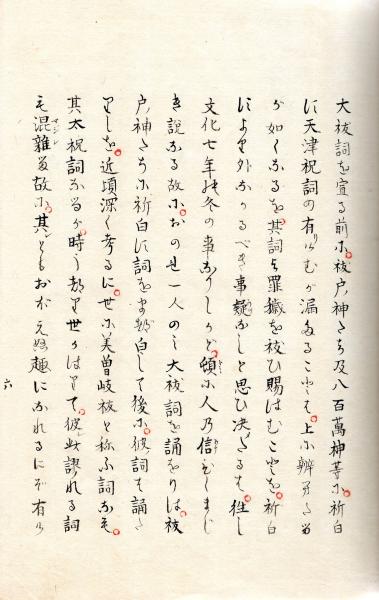 大祓詞を宣る前に祓戸神たち及八百萬神等に祈白
す天津祝詞の有けむが漏たることは上に辨ずる
が如くなるを其詞は罪穢を祓ひ賜はむことを祈白
すより外なかるべき事疑なしと思ひ決たるは往し
文化七年の冬の事なりしかど傾に人乃信ひ
き説なる故におのれ一人のミ大祓詞を誦をりは祓
戸神たちに祈白す詞をまづ白して後に彼詞は誦
りしを近頃深く考るに世に美曽岐祓と称ふ詞なも
其太祝詞なるが時うつり世かはりて彼此謬れる詞
も混雑る故に其ともおぼえぬ趣になれるにぞ有
六